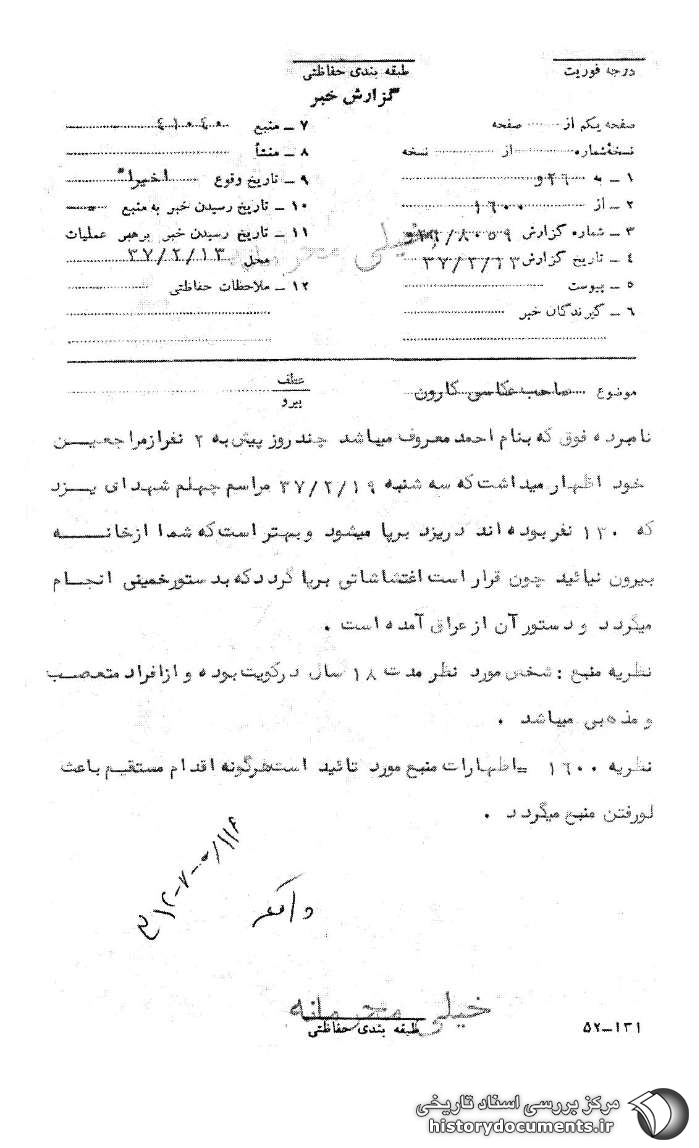 درجه فوریت
طبقه بندی حفاظتی
گزارش خبر
صفحه یکم از ........ صفحه
نسخهٔ شماره ........ از ........ نسخه
۱ ـ به ۲۶ و
۲ ـ از ۱۶۰۰
۳ ـ شماره گزارش /۸۰۵۹
۴ ـ تاریخ گزارش ۳۷/۲/۱۳
۵ ـ پیوست
۶ ـ گیرندگان خبر
۷ ـ منبع ۴۱۰۴۰
۸ ـ منشأ
۹ ـ تاریخ وقوع اخیرا"
۱۰ ـ تاریخ رسیدن خبر به منبع ـ
۱۱ ـ تاریخ رسیدن خبر برهبر عملیات
محل ۳۷/۲/۱۳
۱۲ ـ ملاحظات حفاظتی
خیلی محرمانه
موضوع صاحب عکاسی کارون
عطف
پیرو
نامبرده فوق که بنام احمد معروف میباشد چند روز پیش به ۲ نفر از مراجعین
خود اظهار میداشت که سه شنبه ۳۷/۲/۱۹ مراسم چهلم شهدای یزد
که ۱۳۰ نفر بوده اند در یزد برپا میشود و بهتر است که شما از خانه
بیرون نیائید چون قرار است اغتشاشاتی برپا گردد که بدستور خمینی انجام
میگردد و دستور آن از عراق آمده است .
نظریه منبع : شخص مورد نظر مدت ۱۸ سال در کویت بوده و از افراد متعصب
و مذهبی میباشد .
نظریه ۱۶۰۰ ـ اظهارات منبع مورد تائید است هرگونه اقدام مستقیم باعث
لو رفتن منبع میگردد .
خیلی محرمانه
طبقه بندی حفاظتی
۵۲ـ۱۳۱
مرکز بررسی اسناد تاریخی
historydocuments.ir